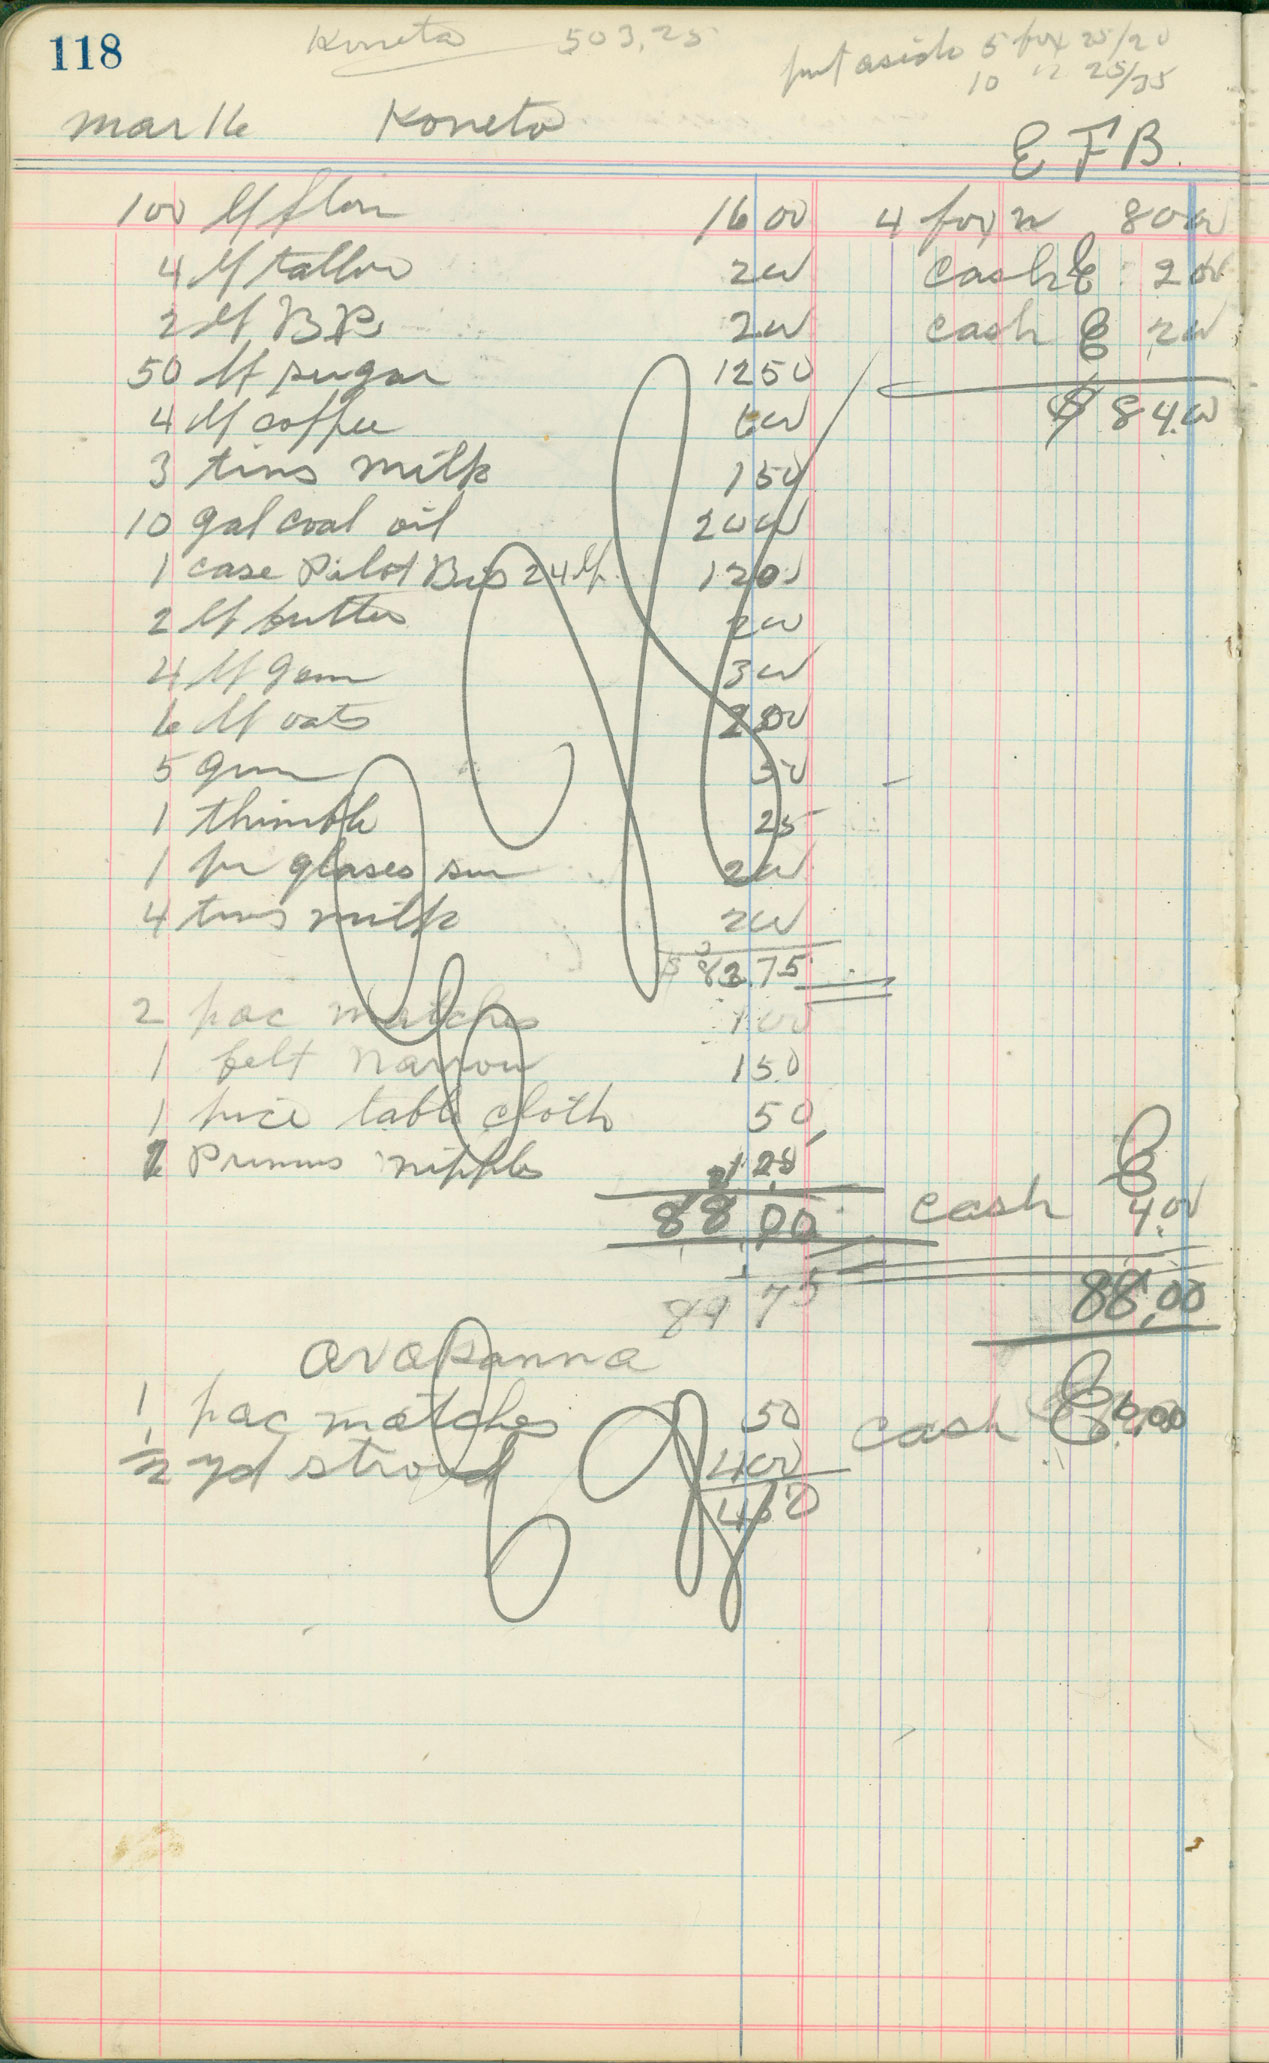 118
Koneta 503,25
put aside 5 fox 25/20
10 " 25/35
mar 16 Koneta
E F B.
100 lb flour 16 00 4 foxes 80 00
4 lb tallow 2 00 cash E 2 00
2 lb B P. 2 00 cash E 2 00
50 lb sugar 12 50
4 lb coffee 6 00 $ 84.00
3 tins milk 1 50
10 gal coal oil 20 00
1 case Pilot Bis 24 lb 12 00
2 lb butter 2 00
4 lb gam 3 00
6 lb oats 2 00
5 gum 50
1 thimble 25
1 pr glases sun 2 00
4 tins milk 2 00
$ 83.75
2 pac matches 1 00
1 belt narrow 1 50
1 piece table cloth 50
2 Primus nipples 1 25
88 00 cash E 4.00
89 75 88,00
avakanna
1 pac matches 50 cash E 6.00
1/2 yd stroud 4 00
4 50